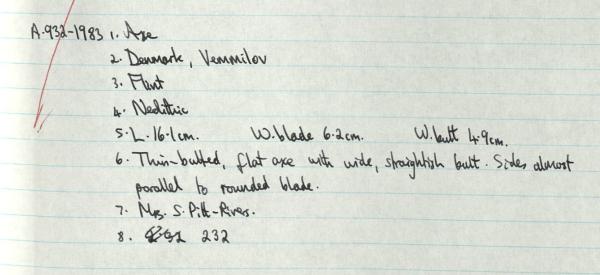 A.932-1983 1. Axe
2. Denmark, Vemmilov
3. Flint
4. Neolithic
5. L. 16.1cm. W. blade 6.2cm. W. butt 4.9cm.
6. Thin-butted, flat axe with wide, straightish butt. Sides almost
parallel to rounded blade.
7. Mrs. S. Pitt-Rivers.
8. 232